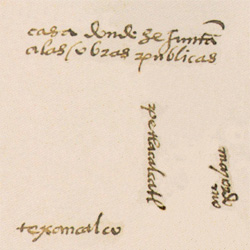 casa donde se juntā
a las obras publicas
petlacalcatl
mayordo
mo
texancalco